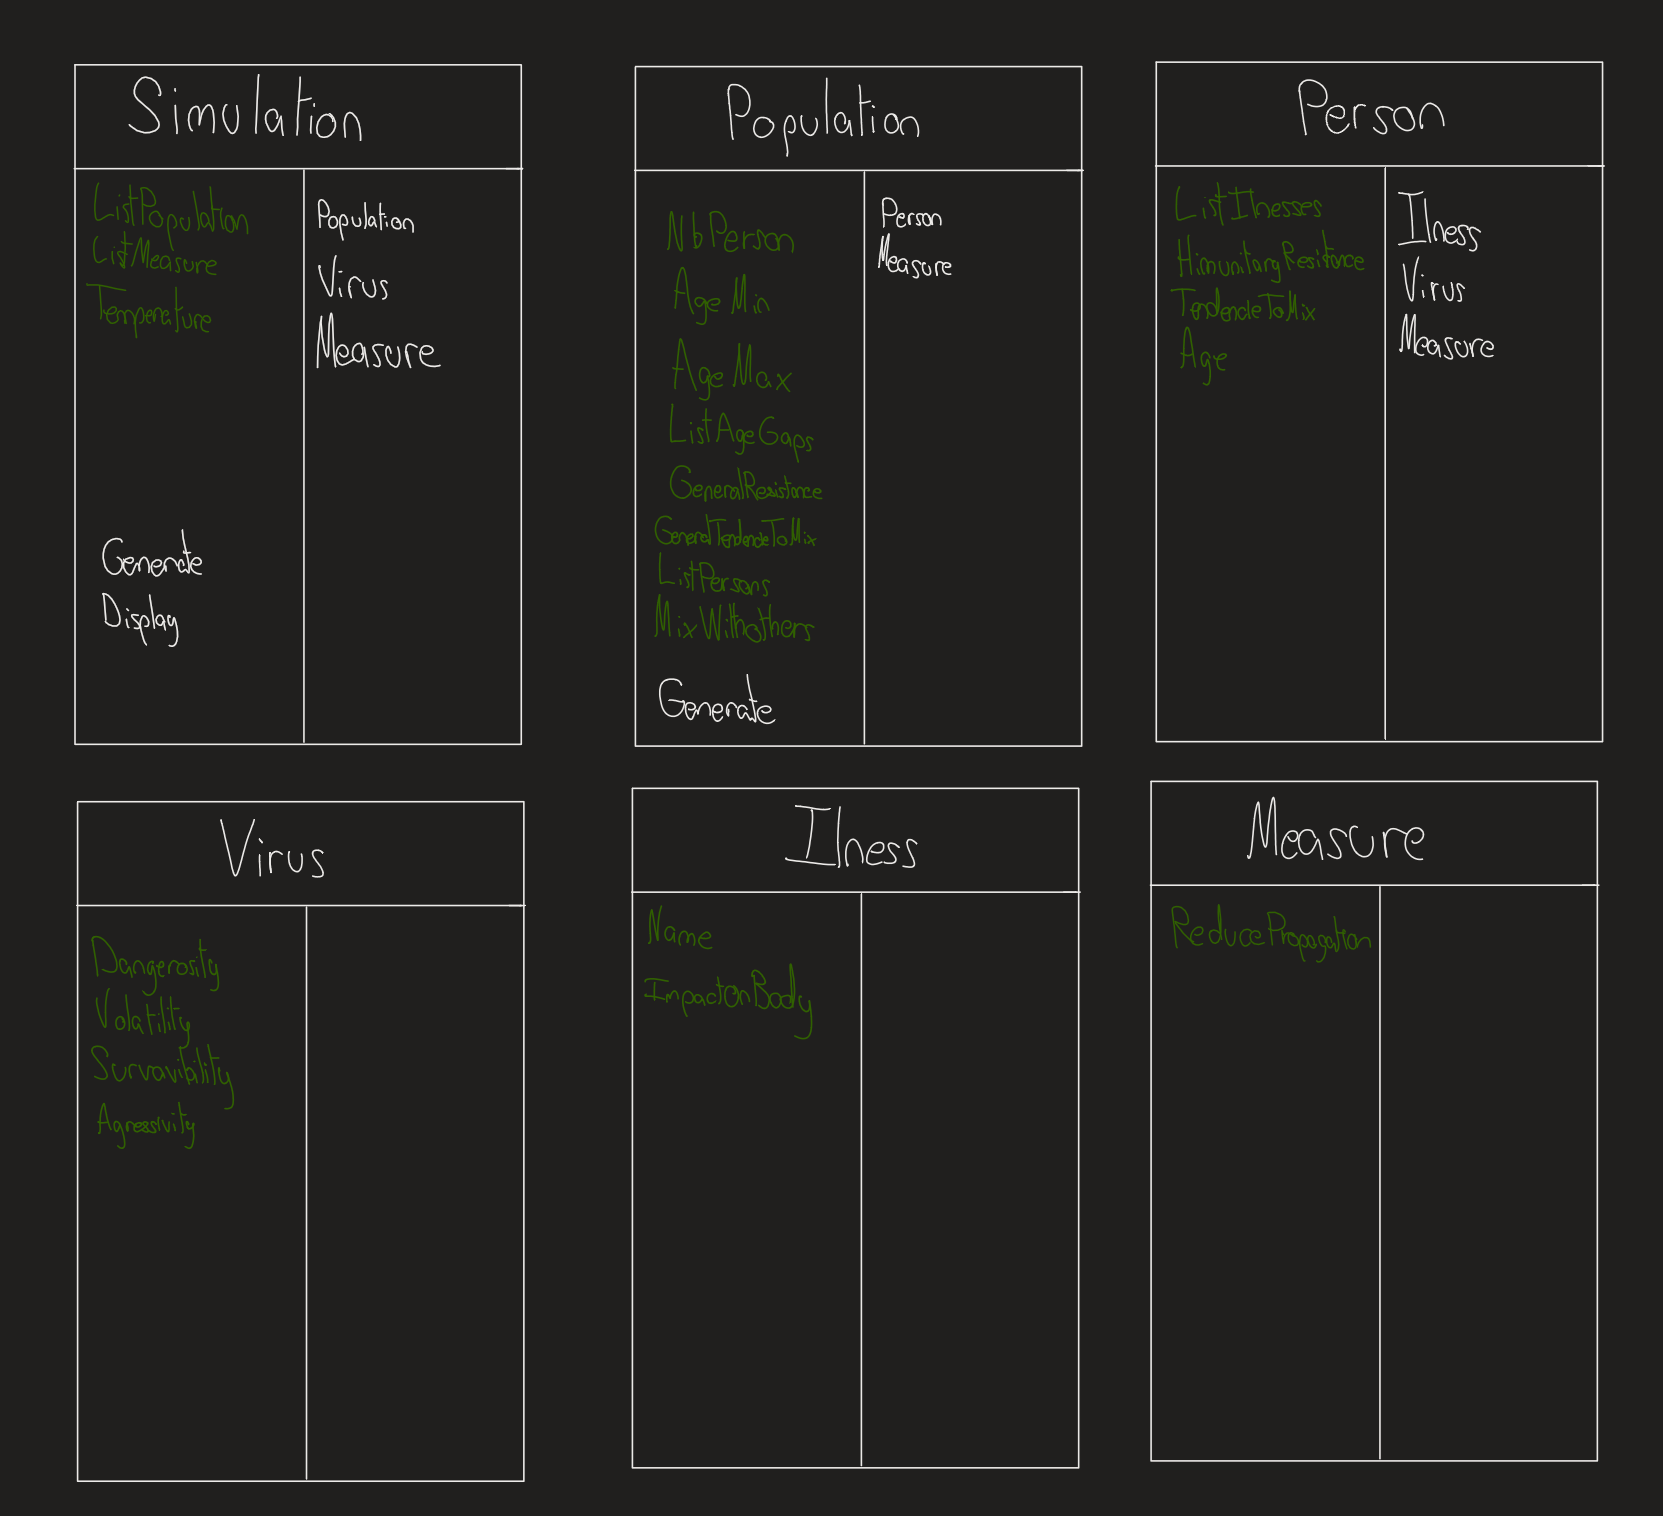 Simulation
ListPopulation
ListMeasure
Temperature
Generate
Display
Population
Virus
Measure
Population
NbPerson
Age Min
Age Max
ListAgeGaps
GeneralResistance
GeneralTendenceToMix
ListPersons
MixWithothers
Generate
Person
Measure
Person
ListIlnesses
HimunitaryResistance
TendenceToMix
Age
Ilness
Virus
Measure
Virus
Dangerosity
Volatility
Survavibility
Agressivity
Ilness
Name
ImpactOnBody
Measure
ReducePropagation